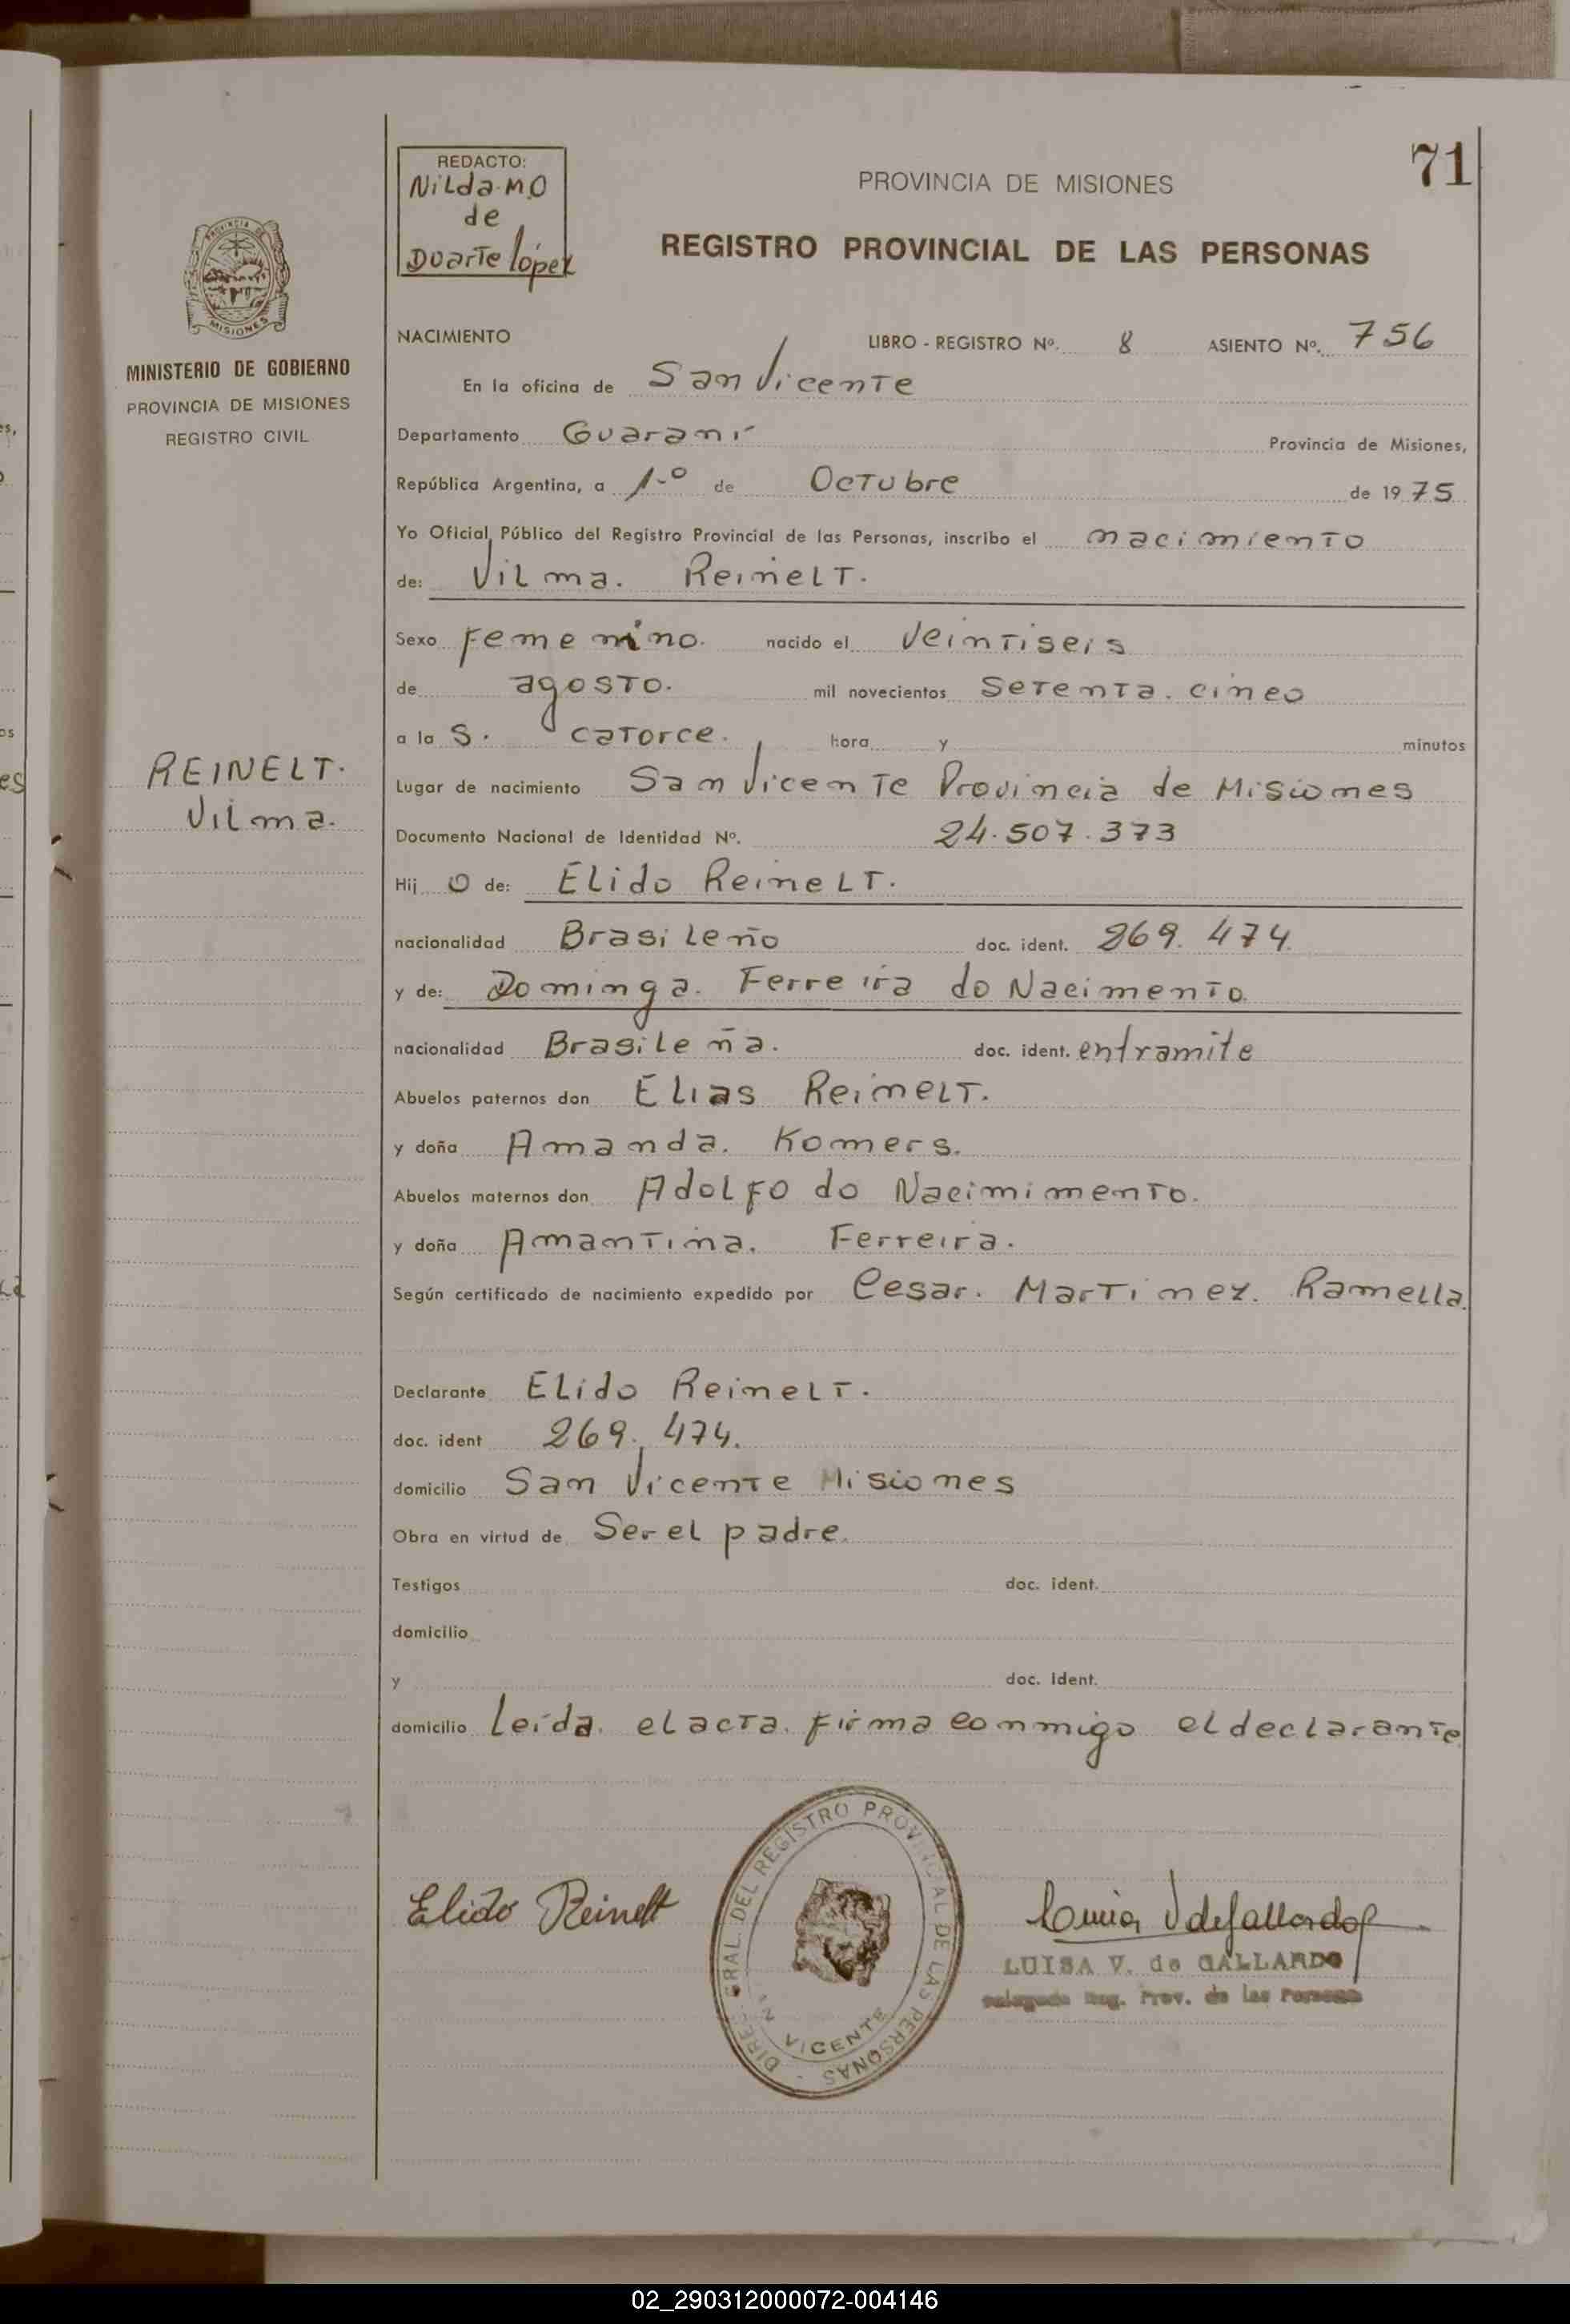 71
REDACTO:
Nilda M.O
de
Duarte López
PROVINCIA DE MISIONES
REGISTRO PROVINCIAL DE LAS PERSONAS
PROVINCIA DE
MISIONES
MINISTERIO DE GOBIERNO
PROVINCIA DE MISIONES
REGISTRO CIVIL
REINELT.
Vilma.
NACIMIENTO LIBRO - REGISTRO Nº. 8 ASIENTO Nº. 756
En la oficina de San Vicente
Departamento Guaraní Provincia de Misiones,
República Argentina, a 1-º de Octubre de 1975
Yo Oficial Público del Registro Provincial de las Personas, inscribo el nacimiento
de: Vilma. Reinelt.
Sexo Femenino. nacido el Veintiseis
de agosto. mil novecientos Setenta. cinco
a la S. catorce. hora y minutos
Lugar de nacimiento San Vicente Provincia de Misiones
Documento Nacional de Identidad Nº. 24.507.373
Hij o de: Elido Reinelt.
nacionalidad Brasileño doc. ident. 269.474
y de: Dominga. Ferreira do Nacimento
nacionalidad Brasileña. doc. ident. entramite
Abuelos paternos don Elias Reinelt.
y doña Amanda. Komers.
Abuelos maternos don Adolfo do Nacimimento.
y doña Amantina. Ferreira.
Según certificado de nacimiento expedido por Cesar. Martinez. Ramella.
Declarante Elido Reinelt.
doc. ident 269.474.
domicilio San Vicente Misiones
Obra en virtud de Ser el padre.
Testigos doc. ident.
domicilio
y doc. ident.
domicilio Leída. el acta. firma conmigo el declarante
Elido Reinelt
DIREC. GRAL. DEL REGISTRO PROVINCIAL DE LAS PERSONAS
VICENTE
LUISA V. de GALLARDO
Delegada Reg. Prov. de las Personas
02_290312000072-004146